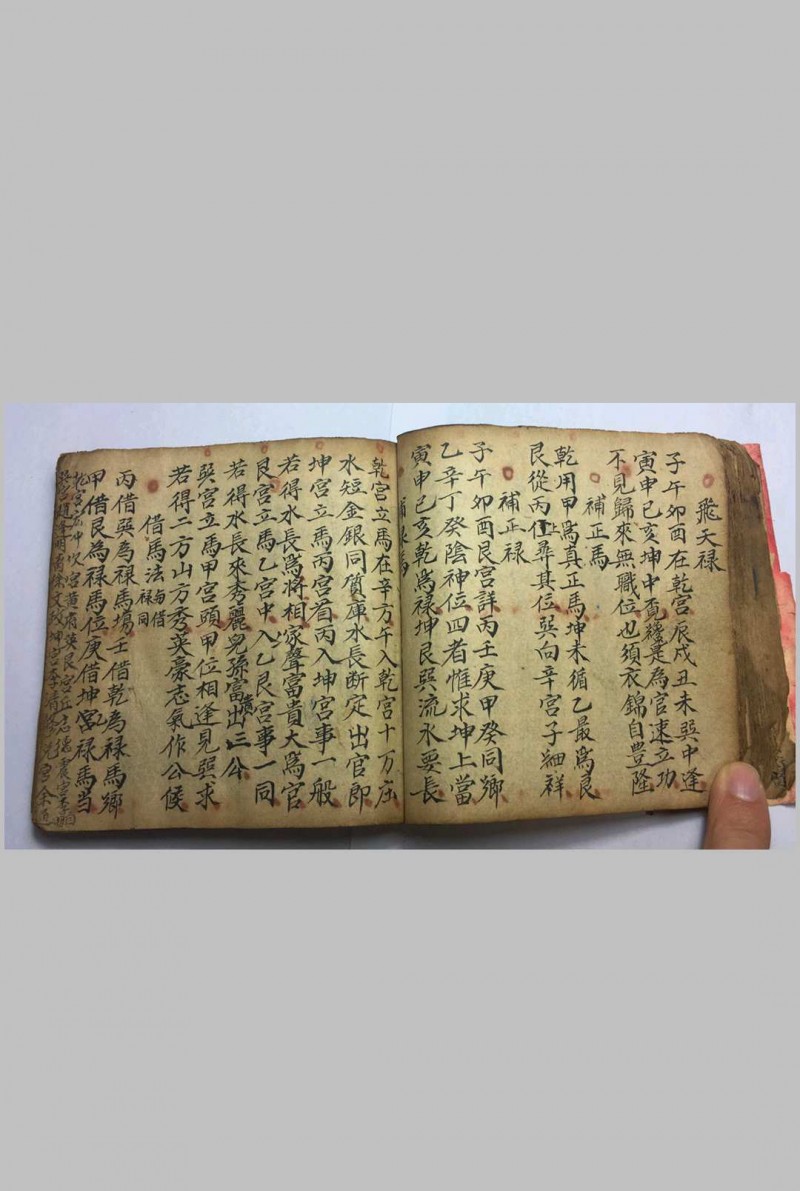 飛天禄
子午卯酉在乾宮辰戌丑未巽中逢
寅申巳亥坤中覓禄是為官速立功
不見歸來無職位也須衣錦自豊隆
補正馬
乾用甲為真正馬坤未循乙最為良
艮從丙上尋其位巽向辛宮子細祥
補正禄
子午卯酉艮宮詳丙壬庚甲癸同鄉
乙辛丁癸陰神位四者惟求坤上當
寅申巳亥乾為禄坤艮巽流水要長
乾宮立馬在辛方午入乾宮十万庄
水短金銀同質庫水長断定出官郎
坤宮立馬丙宮首丙入坤宮事一般
若得水長為將相家聲富貴大為官
艮宮立馬乙宮中入乙艮宮事一同
若得水長來秀麗兒孫富貴出三公
巽宮立馬甲宮頭甲位相逢見巽求
若得二方山方秀英豪志氣作公候
借馬法
禄同
丙借巽為禄馬場壬借乾為禄馬鄉
甲借艮為禄馬位庚借坤宮禄馬当